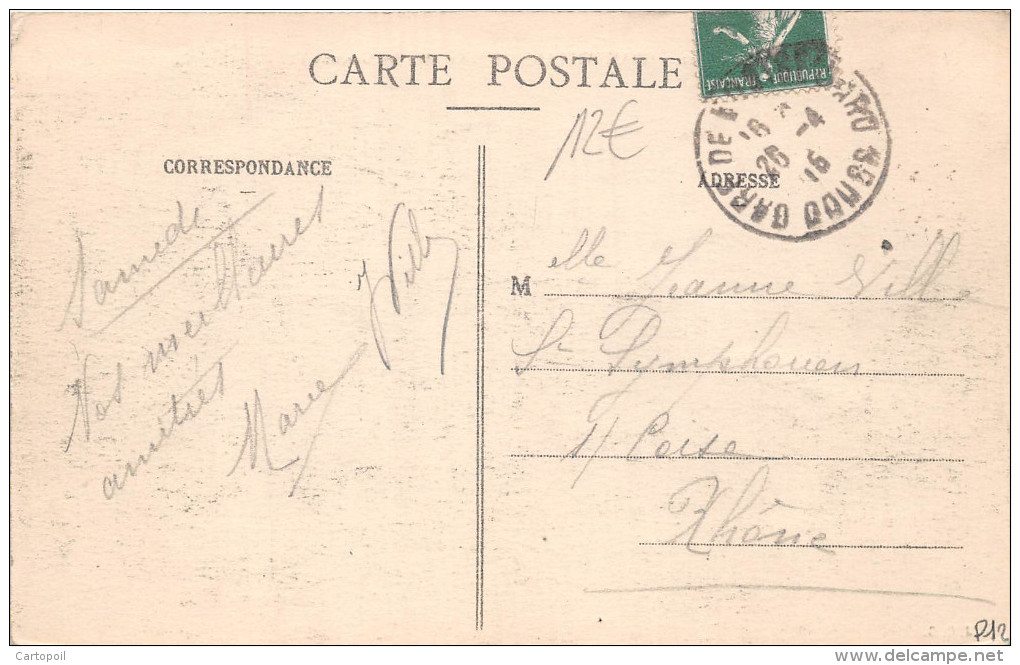 CARTE POSTALE
12€
REPUBLIQUE FRANÇAISE
GARE DE
16
26 -4
15
CORRESPONDANCE
ADRESSE
Samedi
Nos meilleures
amitiés
Marie
Melle Jeanne Ville
St Symphorien
s/ Coise
Rhône
P12
Cartopoil
delcampe.net